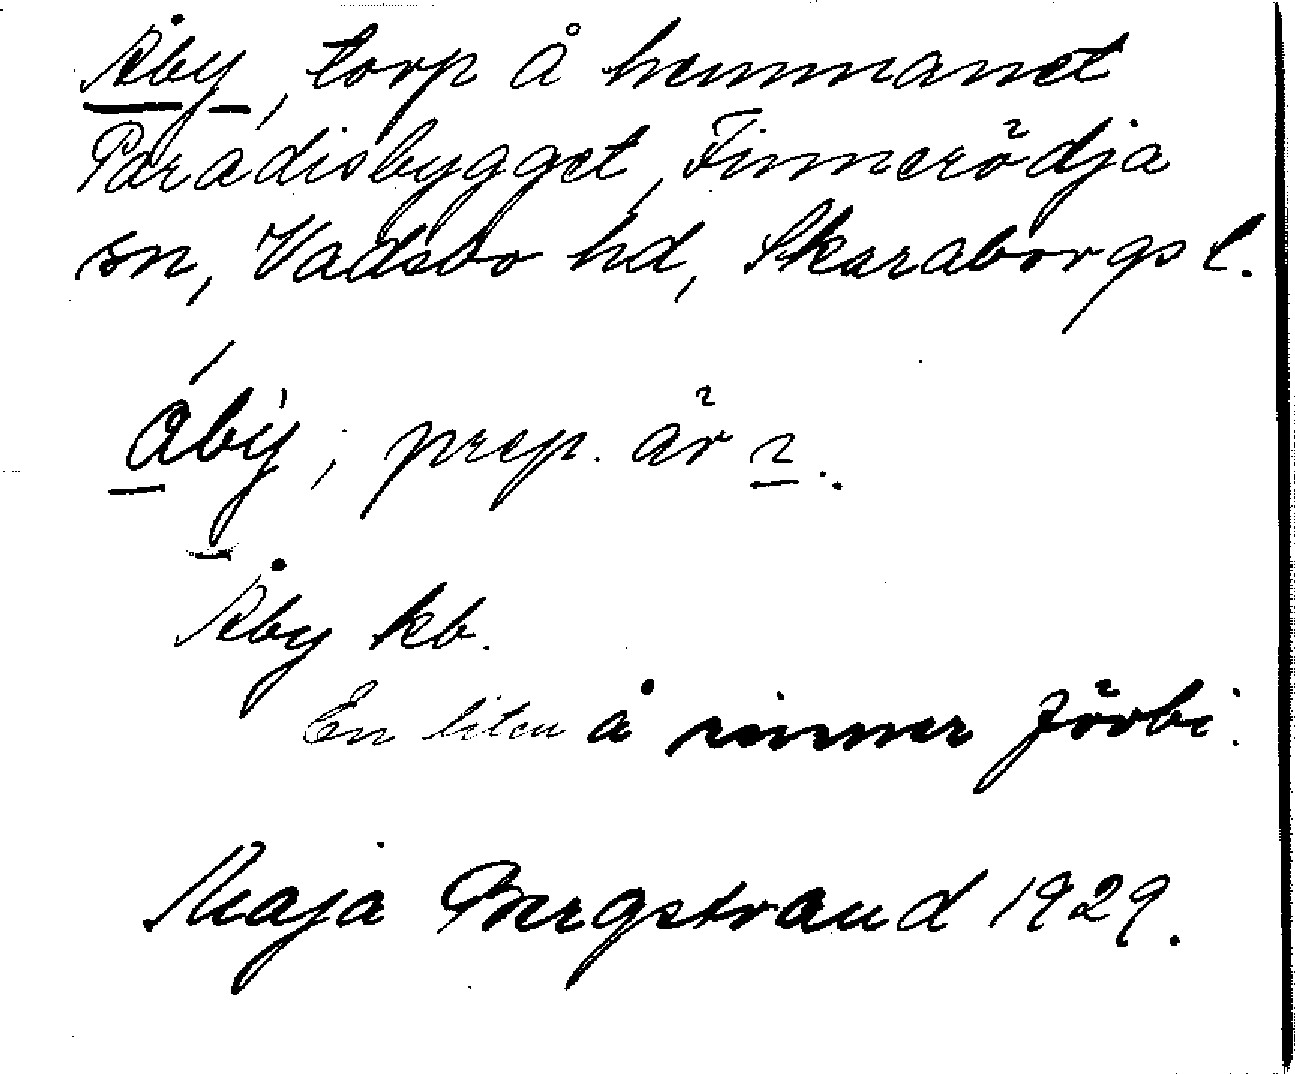 Åby, torp å hemmanet
Paradisbygget, Finnerödja
sn, Vadsbo hd, Skaraborgs l.
åby, prep. är
Åby kb.
En liten å rinner förbi.
Maja Bergstrand 1929.